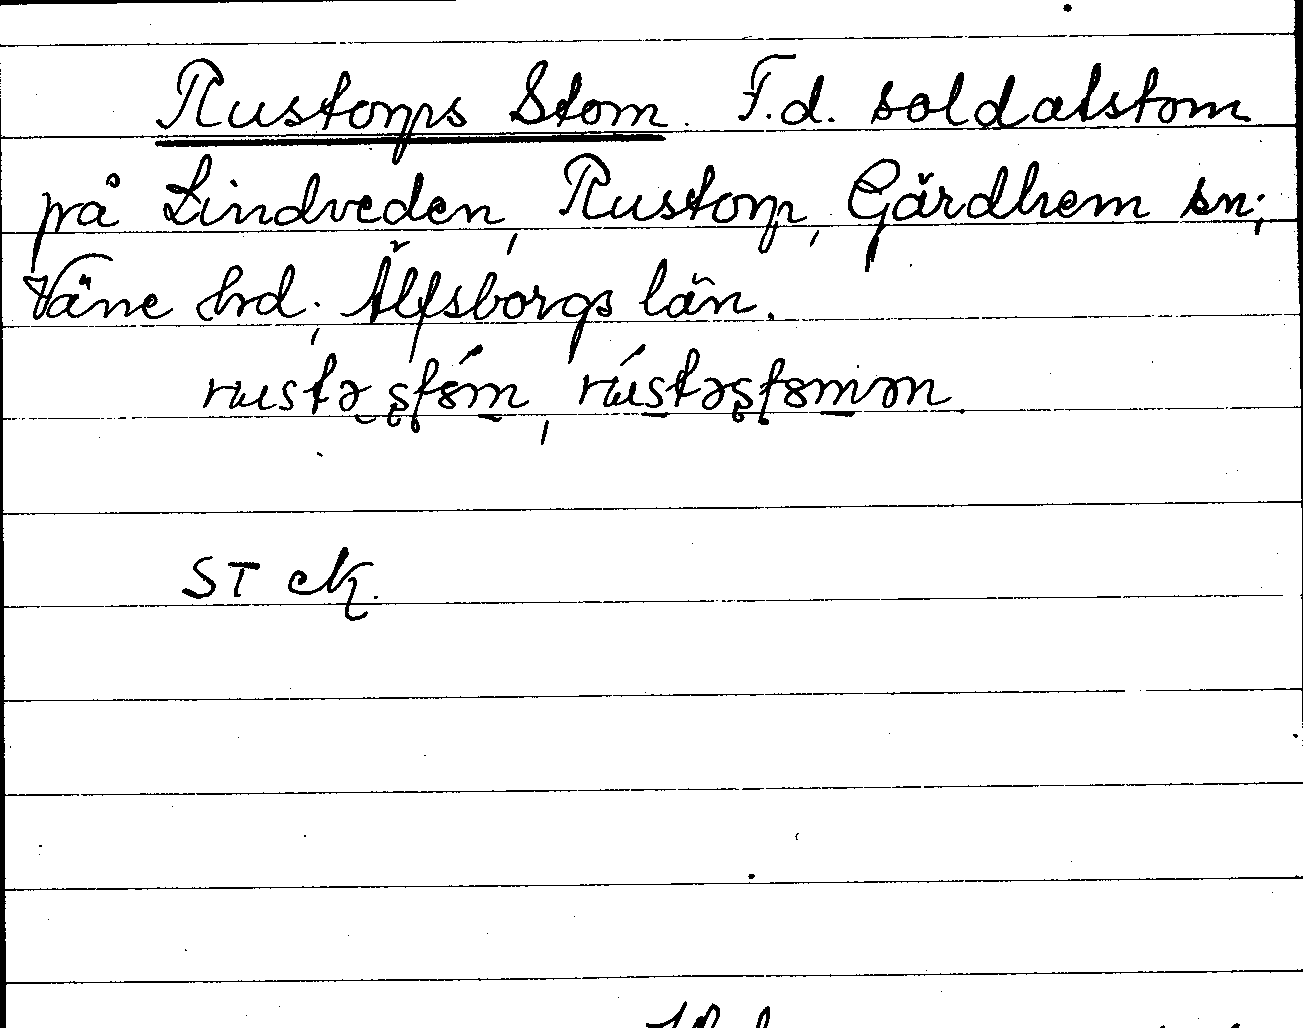 Rustorps Stom. F.d. soldatstom
på Lindveden, Rustorp, Gärdhem sn;
Väne hrd; Älfsborgs län.
rustəstóm, rústəstomən.